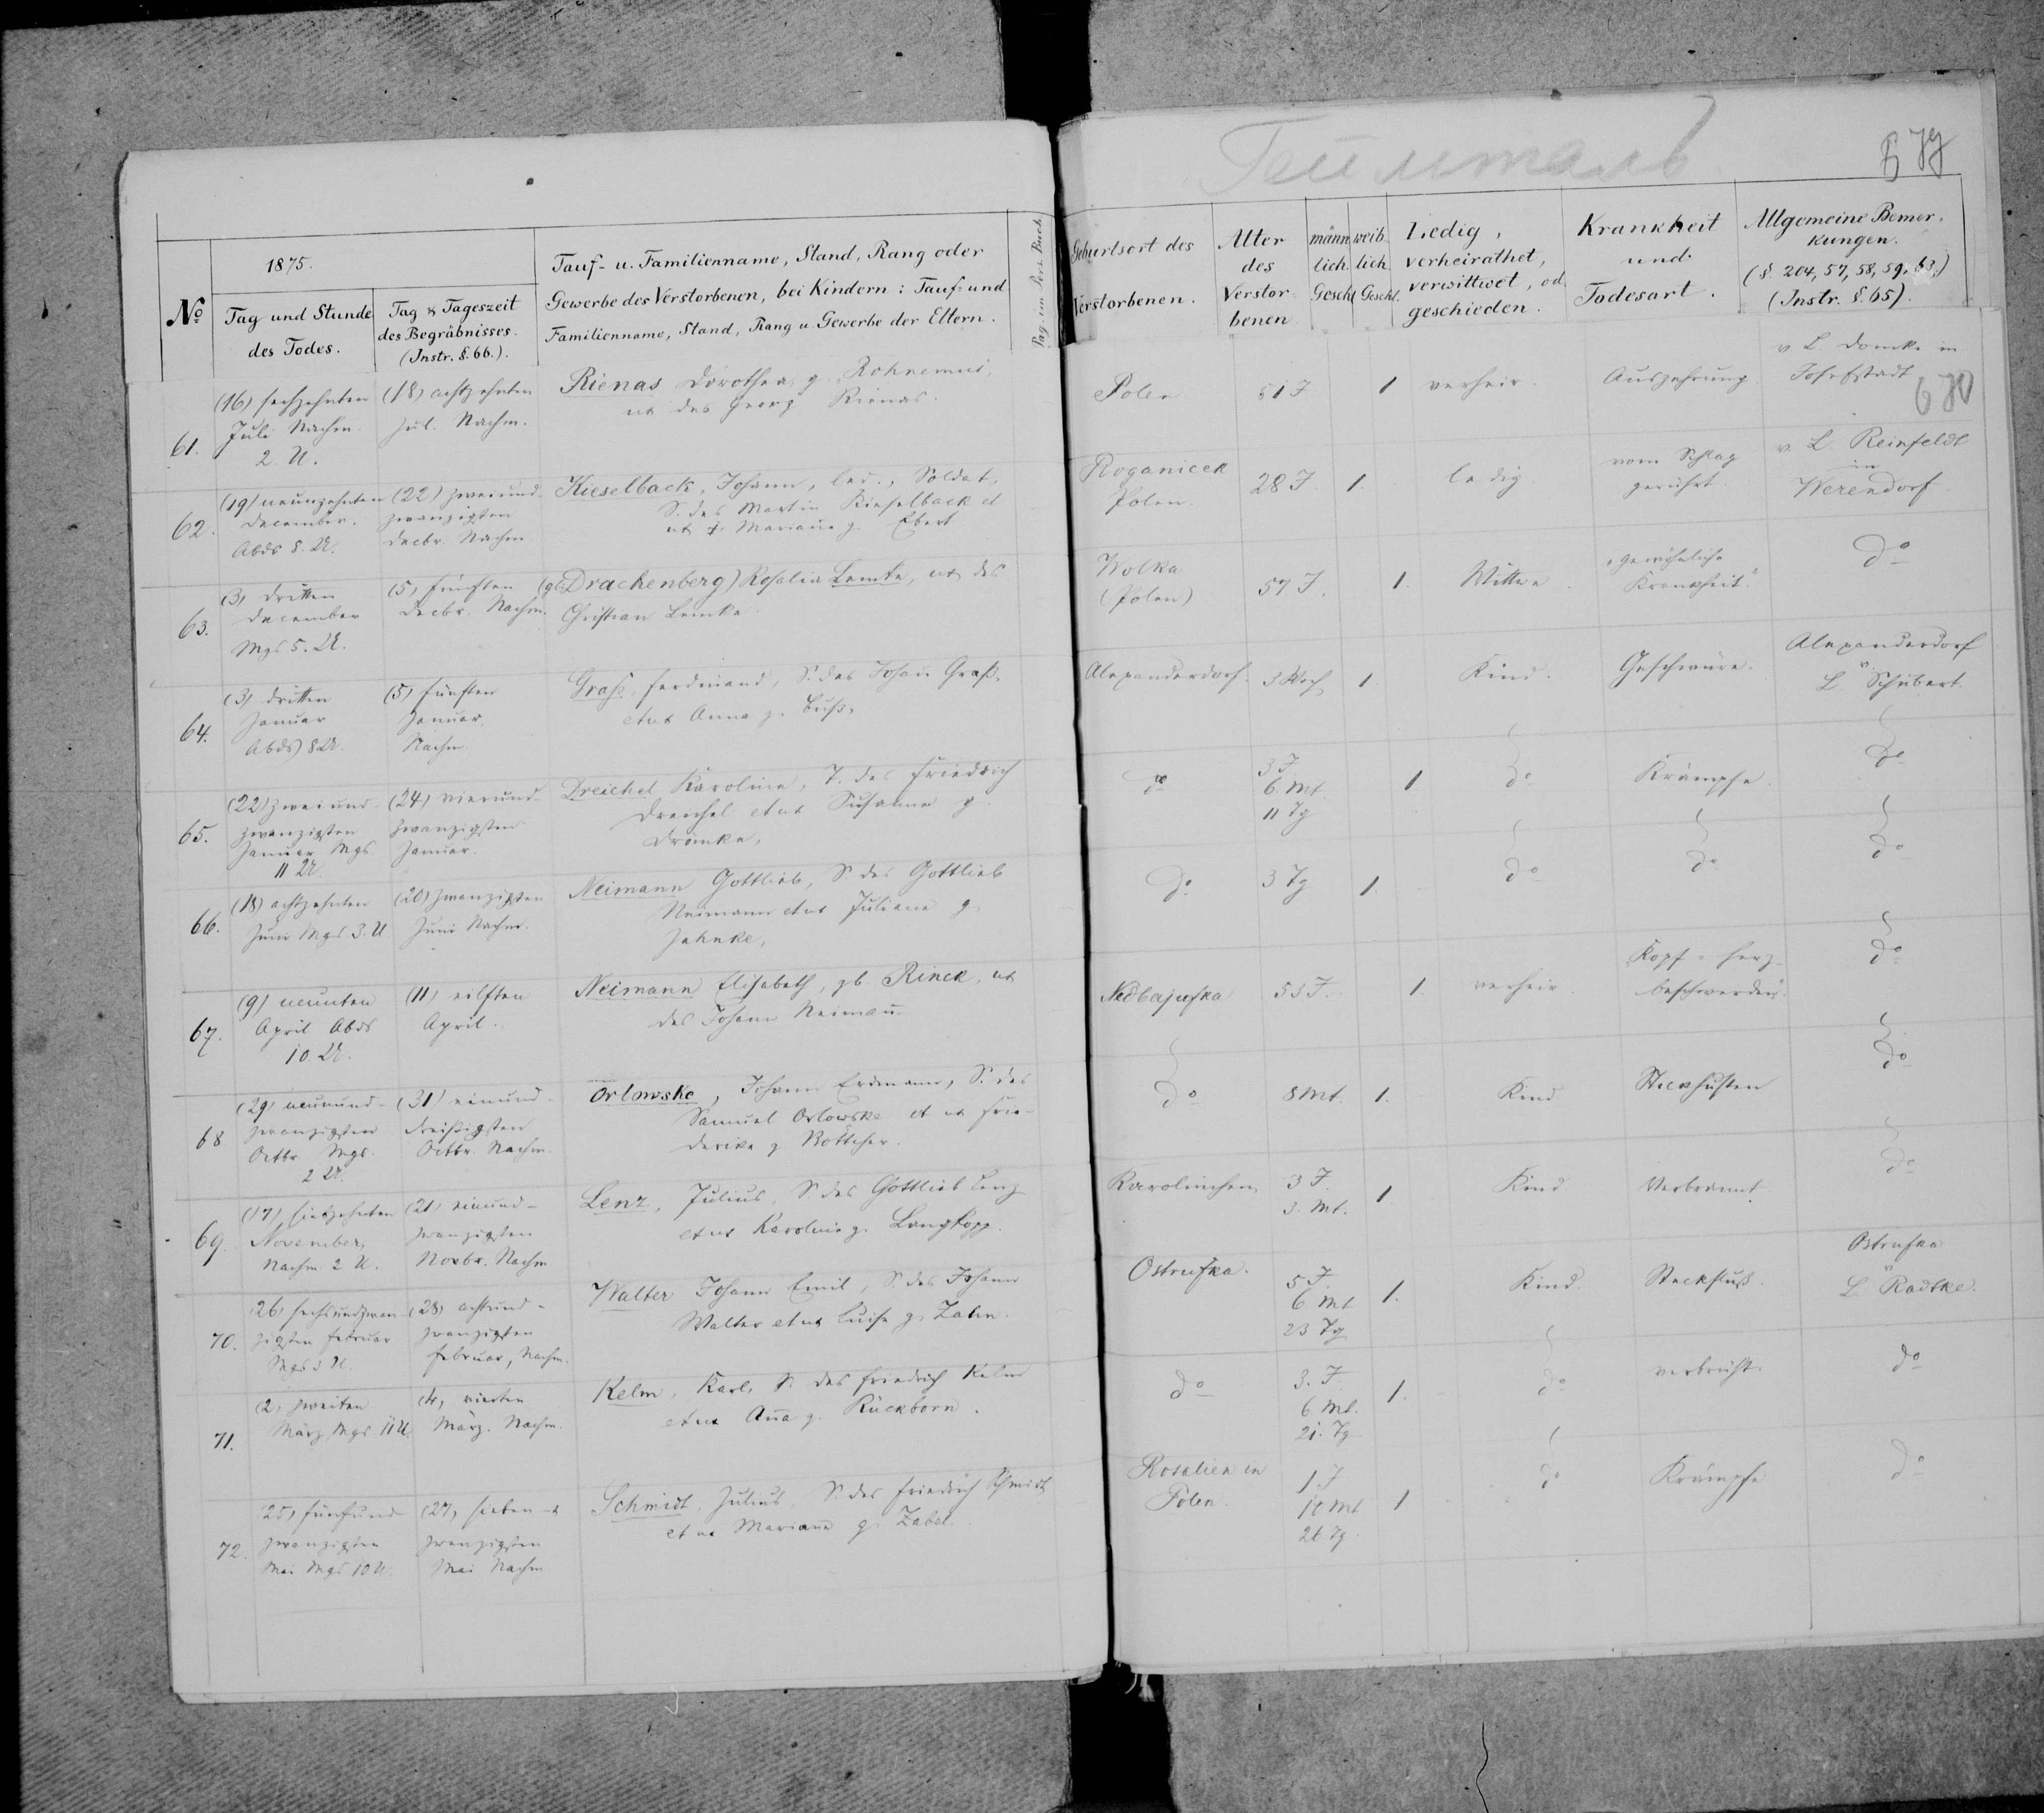 Геймталь
679
680
1875.
No
Tag und Stunde
des Todes.
Tag & Tageszeit
des Begräbnisses.
(Instr. §. 66.).
Tauf- u. Familienname, Stand, Rang oder
Gewerbe des Verstorbenen, bei Kindern: Tauf- und
Familienname, Stand, Rang u. Gewerbe der Eltern.
Pag. im Pers. Buch.
Geburtsort des
Verstorbenen.
Alter
des
Verstor-
benen.
männ-
lich.
Geschl.
weib-
lich.
Geschl.
Ledig,
verheirathet,
verwittwet, od.
geschieden.
Krankheit
und
Todesart.
Allgemeine Bemer-
kungen.
(§. 204, 57, 58, 59, 63.)
(Instr. §. 65).
61.
(16) sechzehnten
Juli Nachm.
2. U.
(18) achtzehnten
Jul. Nachm.
Rienas Dorothea, g. Rohnemus,
ux des Georg Rienas.
Polen
51 J
1
verheir.
Auszehrung
v L. Domke in
Josefstadt
62.
(19) neunzehnten
December,
Abds 8. U.
(22) zweiund-
zwanzigsten
Decbr. Nachm.
Kieselback, Johann, led., Soldat,
S. des Martin Kieselback et
ux Mariane g. Ebert
Roganicek
Polen.
28 J.
1.
ledig
vom Schlag
gerührt.
v. L. Reinfeldt
in
Werendorf
63.
(3) dritten
December
Mgs 5. U.
(5) fünften
Decbr. Nachm.
(gb. Drachenberg) Rosalia Lemke, ux des
Christian Lemke.
Wolka
(Polen)
57 J.
1.
Wittwe
"gewöhnliche
Krankheit"
do
64.
(3) dritten
Januar
Abds) 8 U.
(5) fünften
Januar.
Nachm
Graß, Ferdinand, S. des Johan Graß,
et ux Anna g. Buß.
Alexanderdorf.
3 Woch
1.
Kind.
Geschwüre.
Alexanderdorf
v.
L. Schubert.
65.
(22) zweiund-
zwanzigsten
Januar Mgs
11 U.
(24) vierund-
zwanzigsten
Januar.
Dreichel Karoline, T. des Friedrich
Dreichel et ux Susanna g.
Drömke,
do
3 J
6. Mt.
11 Tg
1
do
Krämpfe.
do
66.
(18) achtzehnten
Juni Mgs 3. U
(20) zwanzigsten
Juni Nachm.
Neimann Gottlieb, S des Gottlieb
Neimann et ux Juliane g.
Jahnke,
do
3 Tg
1.
do
do
do
67.
(9) neunten
April Abds
10. U.
(11) eilften
April.
Neimann Elisabeth, gb. Rinck, ux
des Johann Neiman
Nedbajufka
53 J.
1.
verheir.
Kopf- Herz-
beschwerden.
do
68
(29) neunund-
zwanzigsten
Octbr Mgs.
2 U.
(31) einund-
dreißigsten
Octbr. Nachm.
Orlowske, Johann Erdmann, S. des
Samuel Orlowske et ux Frie-
derike g Böttcher.
do
8 Mt.
1.
Kind
Stickhusten
do
69.
(17) siebzehnten
November,
Nachm. 2 U.
(21) einund-
zwanzigsten
Novbr. Nachm
Lenz, Julius, S. des Gottlieb Lenz
et ux Karoline g. Langkopp.
Karolinchen
3 J.
3. Mt.
1
Kind
Verbrannt.
do
70.
(26) sechsundzwan-
zigsten Februar
Mgs 3 U.
(28) achtund-
zwanzigsten
Februar, Nachm.
Walter Johann Emil, S. des Johann
Walter et ux Luise g. Zahn.
Ostrufka.
5 J.
6. Mt
23 Tg
1.
Kind.
Steckfluß.
Ostrufka
v
L. Radtke.
71.
(2) zweiten
März Mgs 11 U.
(4) vierten
März. Nachm.
Kelm, Karl, S. des Friedrich Kelm
et ux Ana g. Rückborn.
do
3. J.
6. Mt.
21. Tg
1.
do
verbrüht.
do
72.
(25) fünfund-
zwanzigsten
Mai Mgs 10 U.
(27) sieben-u
zwanzigsten
Mai Nachm
Schmidt, Julius, S. des Friedrich Schmidt
et ux Mariane g. Zabel.
Rosalien in
Polen.
1 J
10 Mt
26 Tg.
1
do
Krämpfe
do